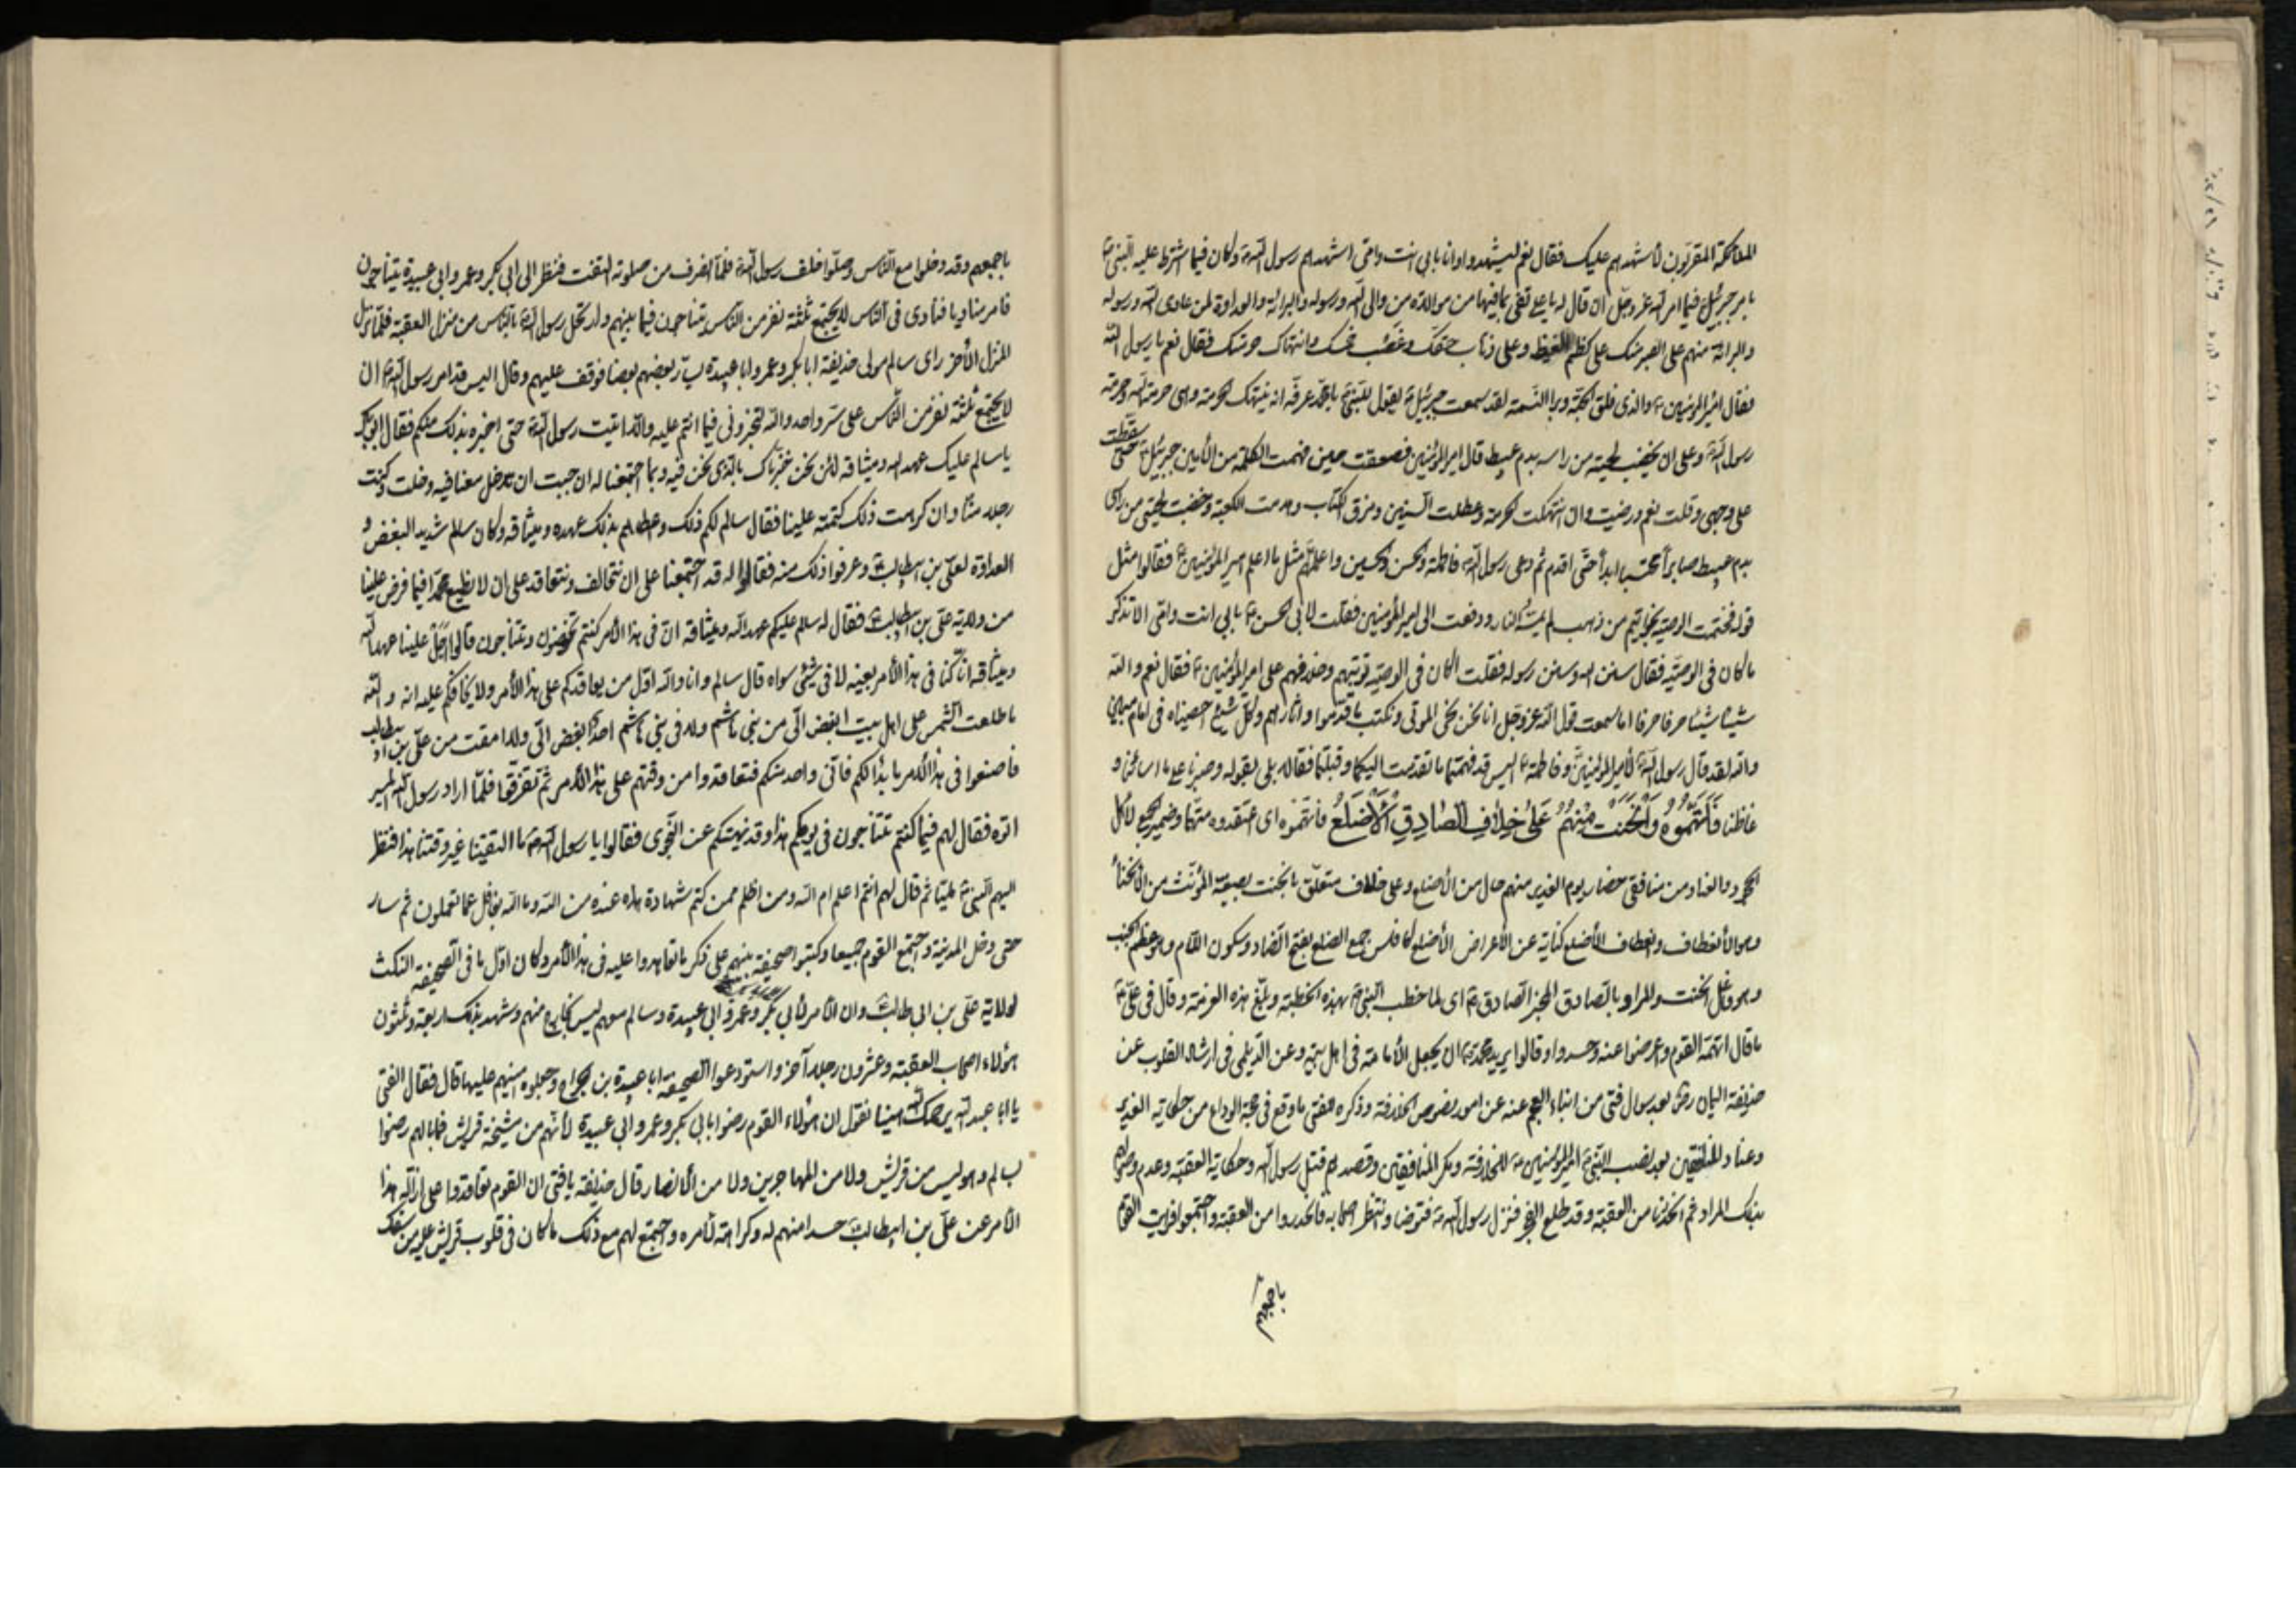 الملائكة المقربون لأشهدهم عليك فقال نعم ليشهدوا وانا بابى انت وامى اشهدهم رسول الله وكان فيما اشترط عليه النبى
بامر جبرئيل فيما امر الله عز وجل ان قال له يا على تفى بما فيها من موالاة من والى الله ورسوله والبرائة والعداوة لمن عادى الله ورسوله
والبرائة منهم على الصبر منك على كظم الغيظ وعلى ذهاب حقك وغصب خمسك وانتهاك حرمتك فقال نعم يا رسول الله
فقال امير المؤمنين والذى فلق الحبة وبرا النسمة لقد سمعت جبرئيل يقول للنبى يا محمد عرفه انه ينتهك الحرمة وهى حرمة الله وحرمة
رسول الله وعلى ان يخضب لحيته من راسه بدم عبيط قال امير المؤمنين فصعقت حين فهمت الكلمة من الأمين جبرئيل حتى سقطت
على وجهى وقلت نعم ورضيت وان انتهكت الحرمة وعطلت السنن ومزق الكتاب وهدمت الكعبة وخضبت لحيتى من راسى
بدم عبيط صابراً محتسبا ابداً حتى اقدم ثم دعى رسول الله فاطمة والحسن والحسين واعلمهم مثل ما اعلم امير المؤمنين فقالوا مثل
قوله فختمت الوصية بخواتيم من ذهب لم تمسه النار ودفعت الى امير المؤمنين فقلت لابى الحسن بابى انت وامى الا تذكر
ما كان فى الوصية فقال سنن الله وسنن رسوله فقلت اكان فى الوصية توثبهم وخلافهم على امير المؤمنين فقال نعم والله
شيئا شيئا حرفا حرفا اما سمعت قول الله عز وجل انا نحن نحى الموتى ونكتب ما قدموا واثارهم وكل شىء احصيناه فى امام مبين
والله لقد قال رسول الله لأمير المؤمنين وفاطمة اليس قد فهمتما ما تقدمت اليكما وقبلتما فقالا بلى بقوله وصبرنا على ما ساءنا و
غاظنا فَاتَّهَمُوهُ وَانْحَنَتْ مِنْهُمُ عَلىٰ خِلافِ الصَّادِقِ الْأَضْلُعُ فاتهموه اى اعتقدوه متهما وضمير الجمع لأهل
الجحود والعناد من منافقى حضار يوم الغدير منهم حال من الأضلع وعلى خلاف متعلق بانحنت بصيغة المؤنث من الأنحناء
وهو الأنعطاف وانعطاف الأضلع كناية عن الأعراض الأضلع كافلس جمع الضلع بفتح الضاد وسكون اللام وهو عظم الجنب
وهو فاعل انحنت والمراد بالصادق المخبر الصادق اى لما خطب النبى بهذه الخطبة وبلغ هذه العزمة وقال فى على
ما قال اتهمه القوم واعرضوا عنه وحسدوا وقالوا يريد محمد ان يجعل الأمامة فى اهل بيته وعن الديلمى فى ارشاد القلوب عن
حذيفة اليمان بعد سوال فتى من ابناء العجم عنه عن امور بخصوص الخلافة وذكره للفتى ما وقع فى حجة الوداع من حكاية الغدير
وعناد المنافقين بعد نصب النبى امير المؤمنين للخلافة ومكر المنافقين وقصدهم قتل رسول الله وحكاية العقبة وعدم وصولهم
بذلك المراد ثم انحدرنا من العقبة وقد طلع الفجر فنزل رسول الله فتوضا وانتظر اصحابه فانحدروا من العقبة واجتمعوا فرايت القوم
باجمعهم
باجمعهم وقد دخلوا مع الناس وصلوا خلف رسول الله فلما انصرف من صلوته التفت فنظر الى ابى بكر وعمر وابى عبيدة يتناجون
فامر مناديا فنادى فى الناس لا يجتمع ثلثة نفر من الناس يتناجون فيما بينهم وارتحل رسول الله بالناس من منزل العقبة فلما نزل
المنزل الأخر راى سالم مولى حذيفة ابا بكر وعمر وابا عبيدة يسار بعضهم بعضا فوقف عليهم وقال اليس قد امر رسول الله ان
لا يجتمع ثلثة نفر من الناس على سر واحد والله لتخبرونى فيما انتم عليه والا اتيت رسول الله حتى اخبره بذلك منكم فقال ابو بكر
يا سالم عليك عهد الله وميثاقه لئن نحن خبرناك بالذى نحن فيه وبما اجتمعنا له ان احببت ان تدخل معنا فيه دخلت وكنت
رجلا منا وان كرهت ذلك كتمته علينا فقال سالم لكم ذلك واعطاهم بذلك عهده وميثاقه وكان سالم شديد البغض و
العداوة لعلى بن ابيطالب وعرفوا ذلك منه فقالوا له قد اجتمعنا على ان نتحالف ونتعاقد على ان لا نطيع محمدا فيما فرض علينا
من ولاية على بن ابيطالب فقال له سالم عليكم عهد الله وميثاقه ان فى هذا الأمر كنتم تخوضون وتتناجون قالوا اجل علينا عهد الله
وميثاقه انا كنا فى هذا الأمر بعينه لا فى شىء سواه قال سالم وانا والله اول من يعاقدكم على هذا الأمر ولا يخالفكم عليه انه والله
ما طلعت الشمس على اهل بيت ابغض الى من بنى هاشم ولا فى بنى هاشم احد ابغض الى ولا امقت من على بن ابيطالب
فاصنعوا فى هذا الأمر ما بدا لكم فانى واحد منكم فتعاقدوا من وقتهم على هذا الأمر ثم تفرقوا فلما اراد رسول الله المسير
اتوه فقال لهم فيما كنتم تتناجون فى يومكم هذا وقد نهيتكم عن النجوى فقالوا يا رسول الله ما التقينا غير وقتنا هذا فنظر
اليهم النبى مليا ثم قال لهم انتم اعلم ام الله ومن اظلم ممن كتم شهادة عنده من الله وما الله بغافل عما تعملون ثم سار
حتى دخل المدينة واجتمع القوم جميعا وكتبوا صحيفة بينهم على ذكر ما تعاهدوا عليه فى هذا الأمر وكان اول ما فى الصحيفة النكث
لولاية على بن ابى طالب وان الأمر لأبى بكر وعمر وابى عبيدة وسالم معهم ليس بخارج منهم وشهد بذلك اربعة وثلثون
هؤلاء اصحاب العقبة وعشرون رجلا آخر واستودعوا الصحيفة ابا عبيدة بن الجراح وجعلوه امينهم عليها قال فقال الفتى
يا ابا عبد الله يرحمك الله هبنا نقول ان هؤلاء القوم رضوا بابى بكر وعمر وابى عبيدة لأنهم من مشيخة قريش فما بالهم رضوا
بسالم وهو ليس من قريش ولا من المهاجرين ولا من الأنصار قال حذيفة يا فتى ان القوم تعاقدوا على ازالة هذا
الأمر عن على بن ابيطالب حسدا منهم له وكراهة لأمره واجتمع لهم مع ذلك ما كان فى قلوب قريش عليه من سفك